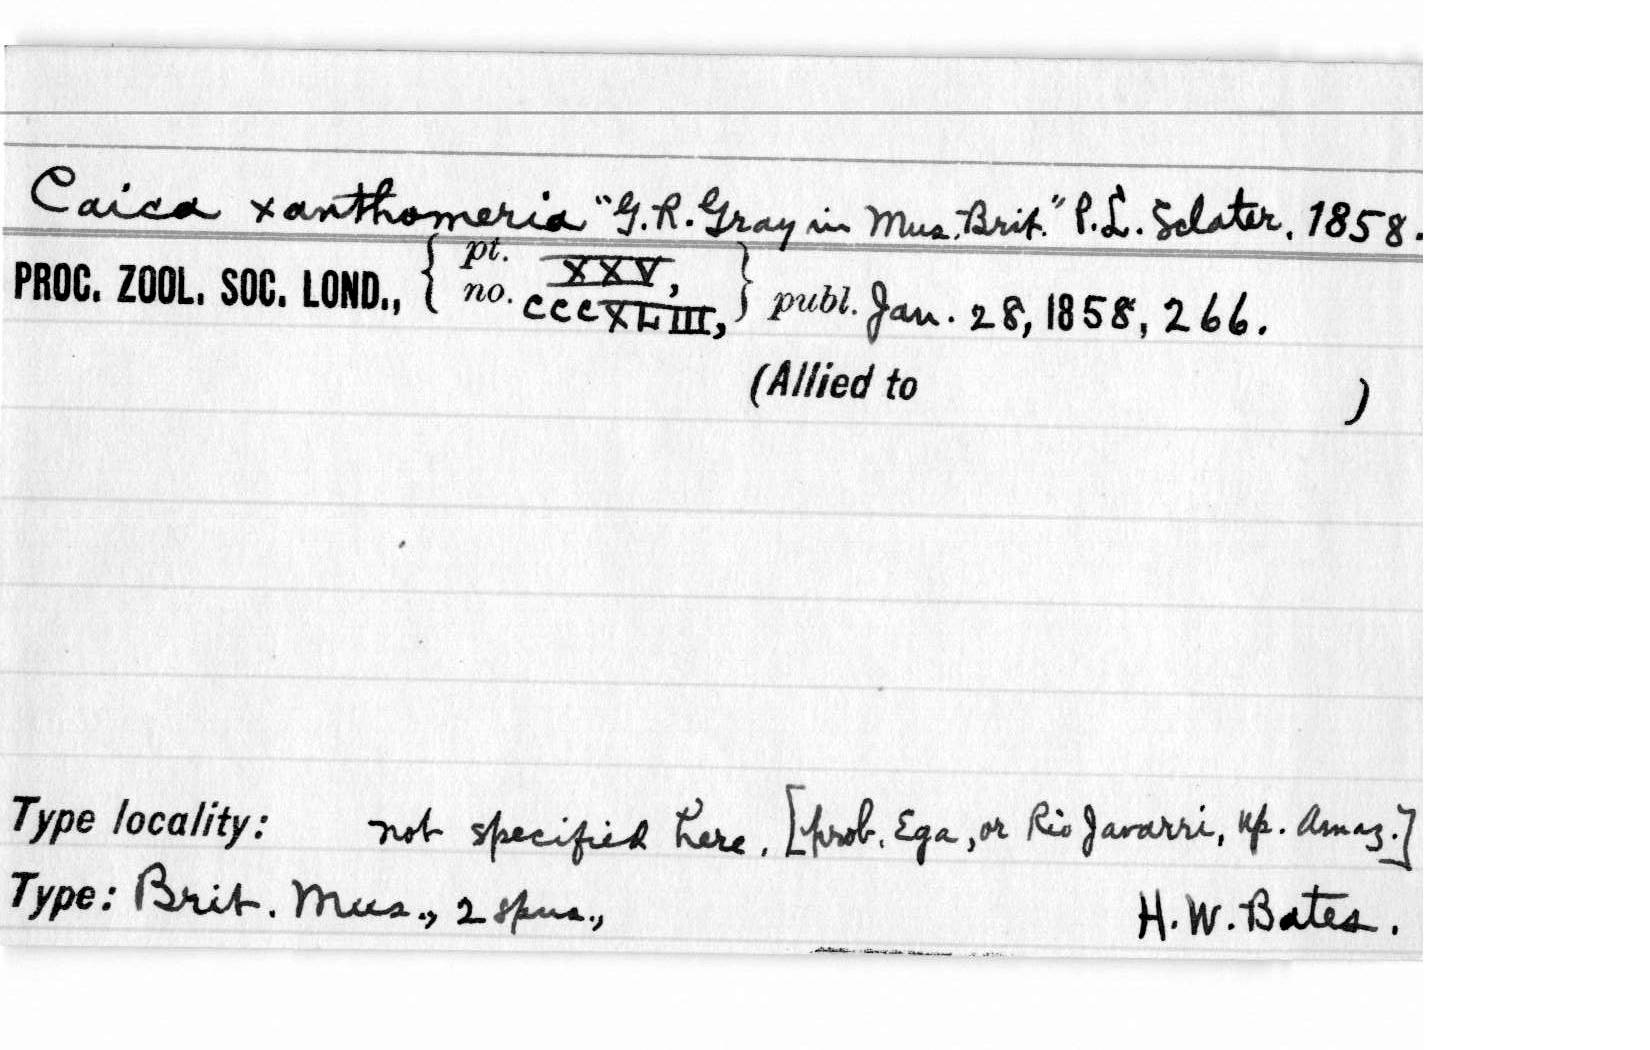 Caica xanthomeria "G.R. Gray in Mus. Brit." P.L. Sclater. 1858.
PROC. ZOOL. SOC. LOND., { pt. XXV, no. CCCXLIII, } publ. Jan. 28, 1858, 266.
(Allied to )
Type locality: not specified here. [prob. Ega, or Rio Javarri, up. Amaz.]
Type: Brit. Mus., 2 spns., H.W. Bates.